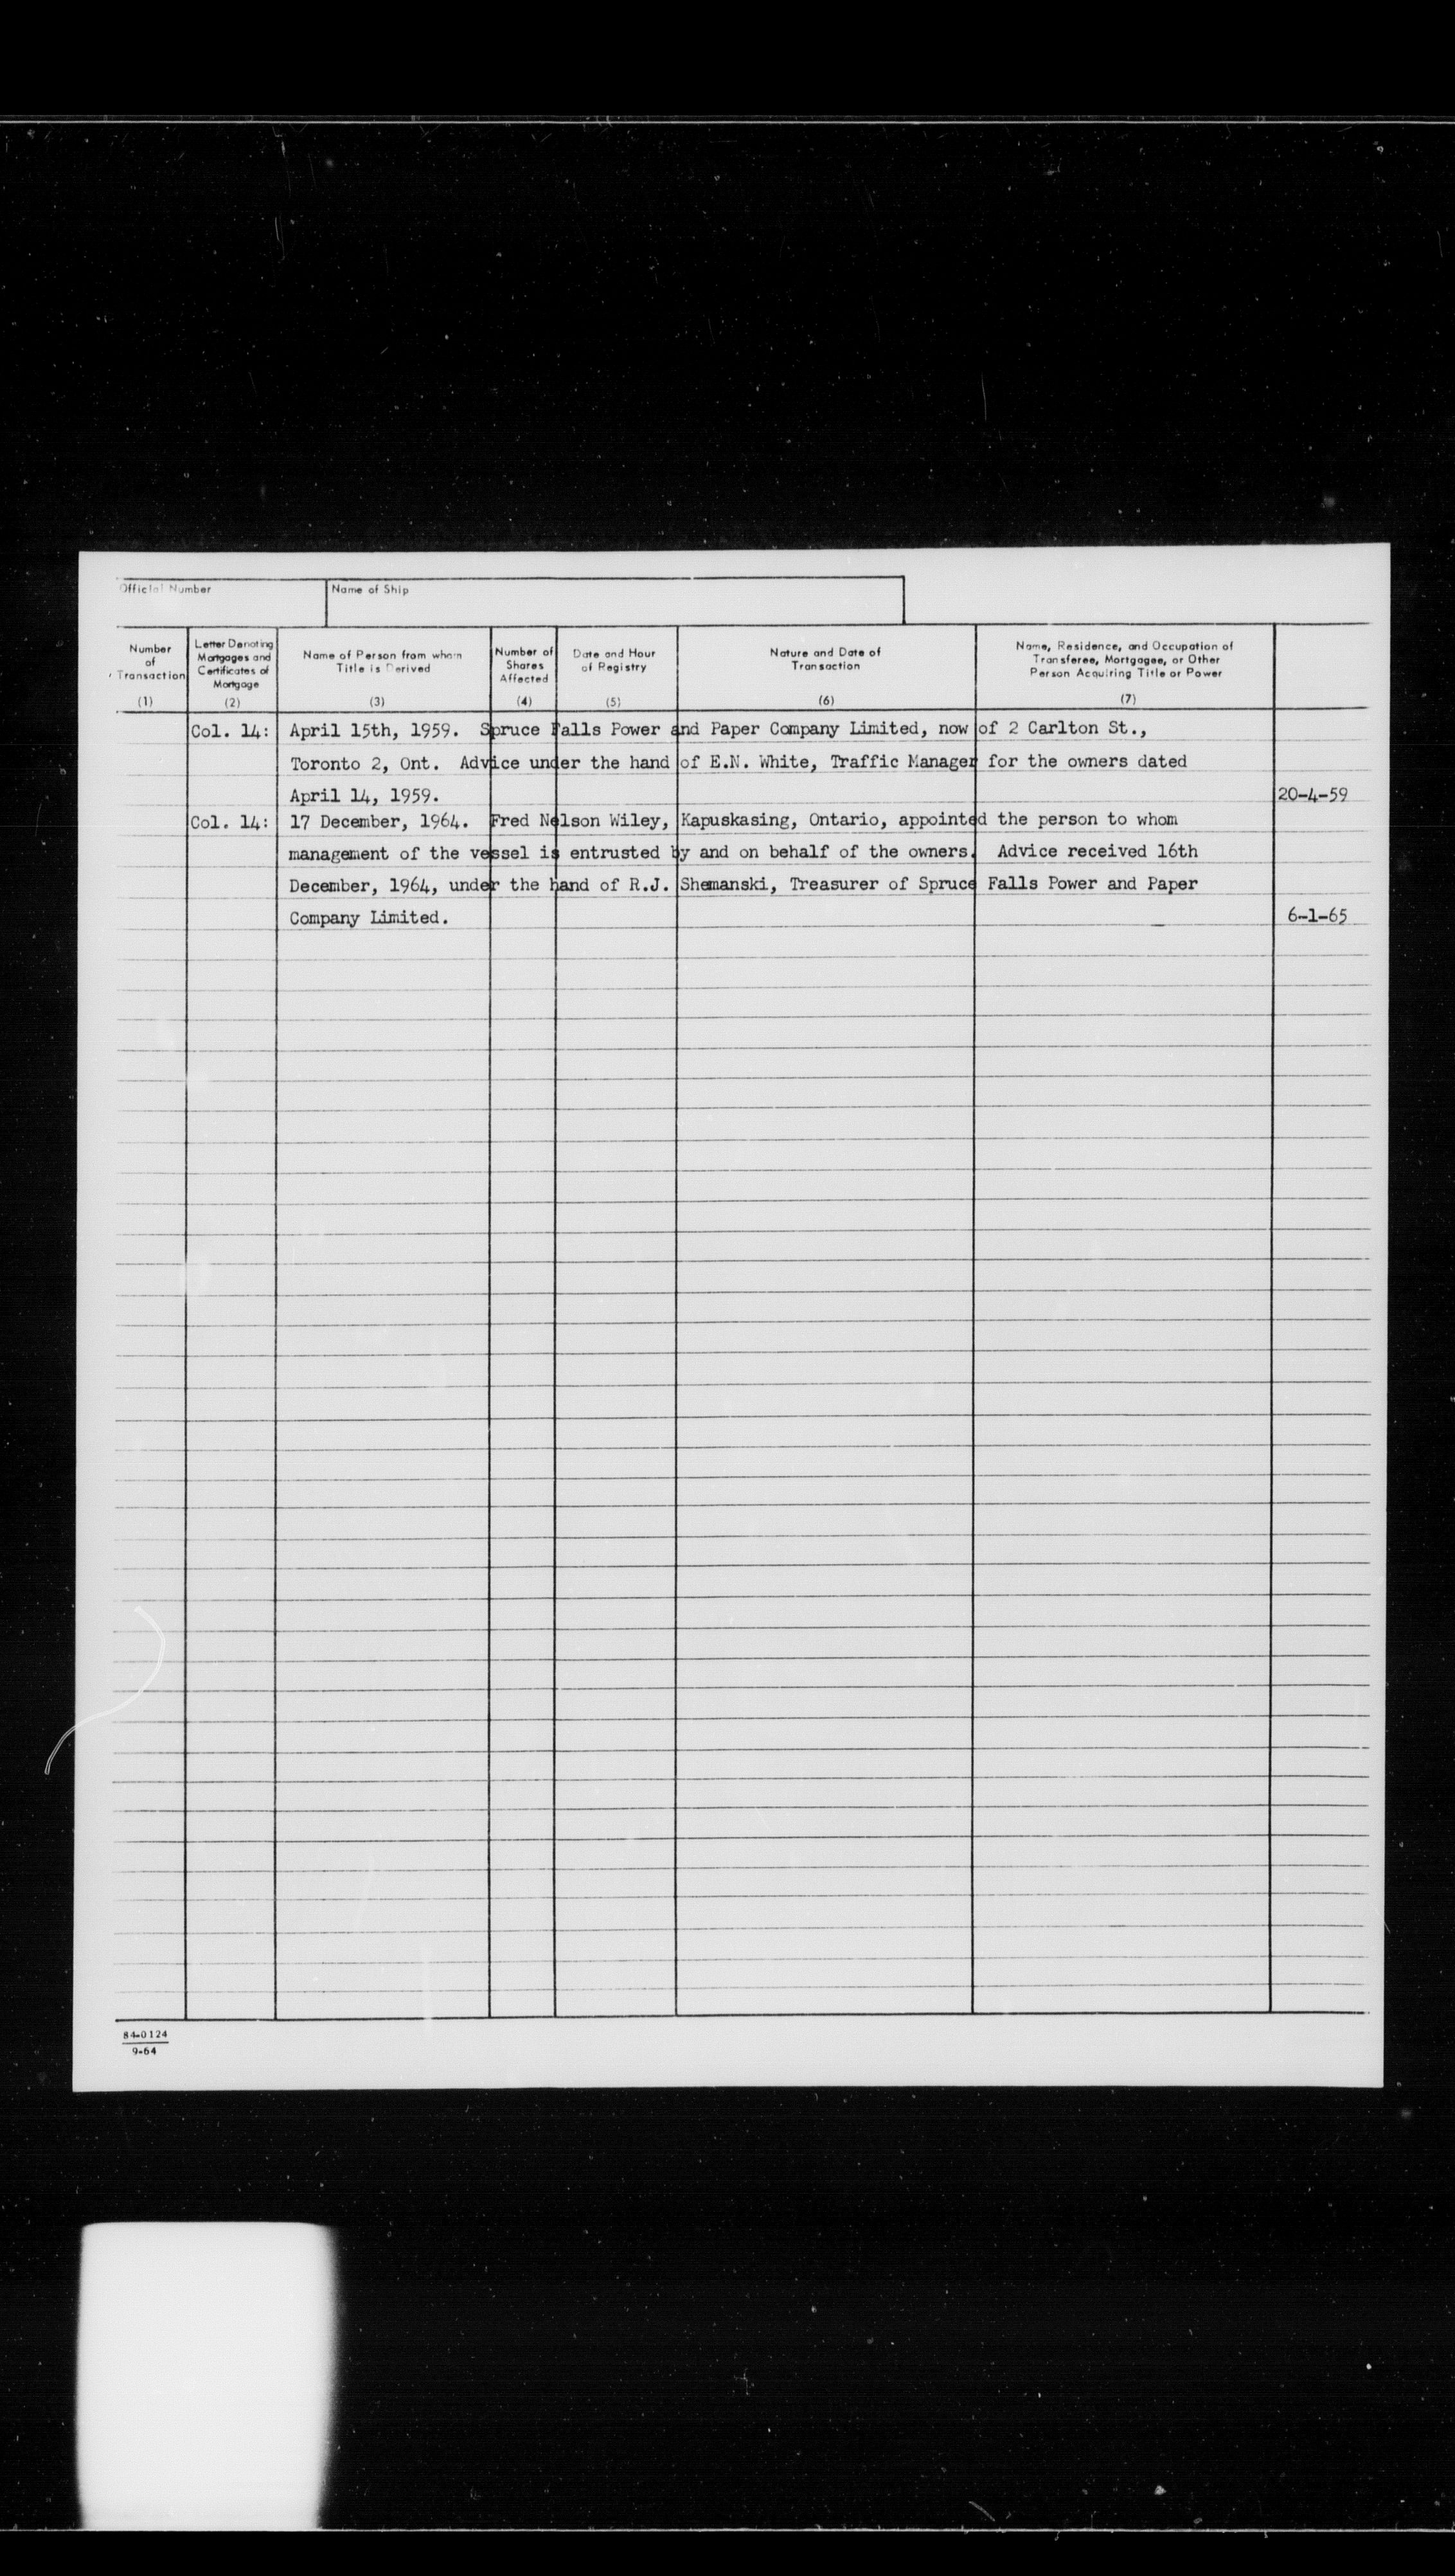 Official Number
Name of Ship
Number
of
Transaction
(1)
Letter Denoting
Mortgages and
Certificates of
Mortgage
(2)
Name of Person from whom
Title is Derived
(3)
Number of
Shares
Affected
(4)
Date and Hour
of Registry
(5)
Nature and Date of
Transaction
(6)
Name, Residence, and Occupation of
Transferee, Mortgagee, or Other
Person Acquiring Title or Power
(7)
Col. 14: April 15th, 1959. Spruce Falls Power and Paper Company Limited, now of 2 Carlton St.,
Toronto 2, Ont. Advice under the hand of E.N. White, Traffic Manager for the owners dated
April 14, 1959. 20-4-59
Col. 14: 17 December, 1964. Fred Nelson Wiley, Kapuskasing, Ontario, appointed the person to whom
management of the vessel is entrusted by and on behalf of the owners. Advice received 16th
December, 1964, under the hand of R.J. Shemanski, Treasurer of Spruce Falls Power and Paper
Company Limited. 6-1-65
84-0124
9-64